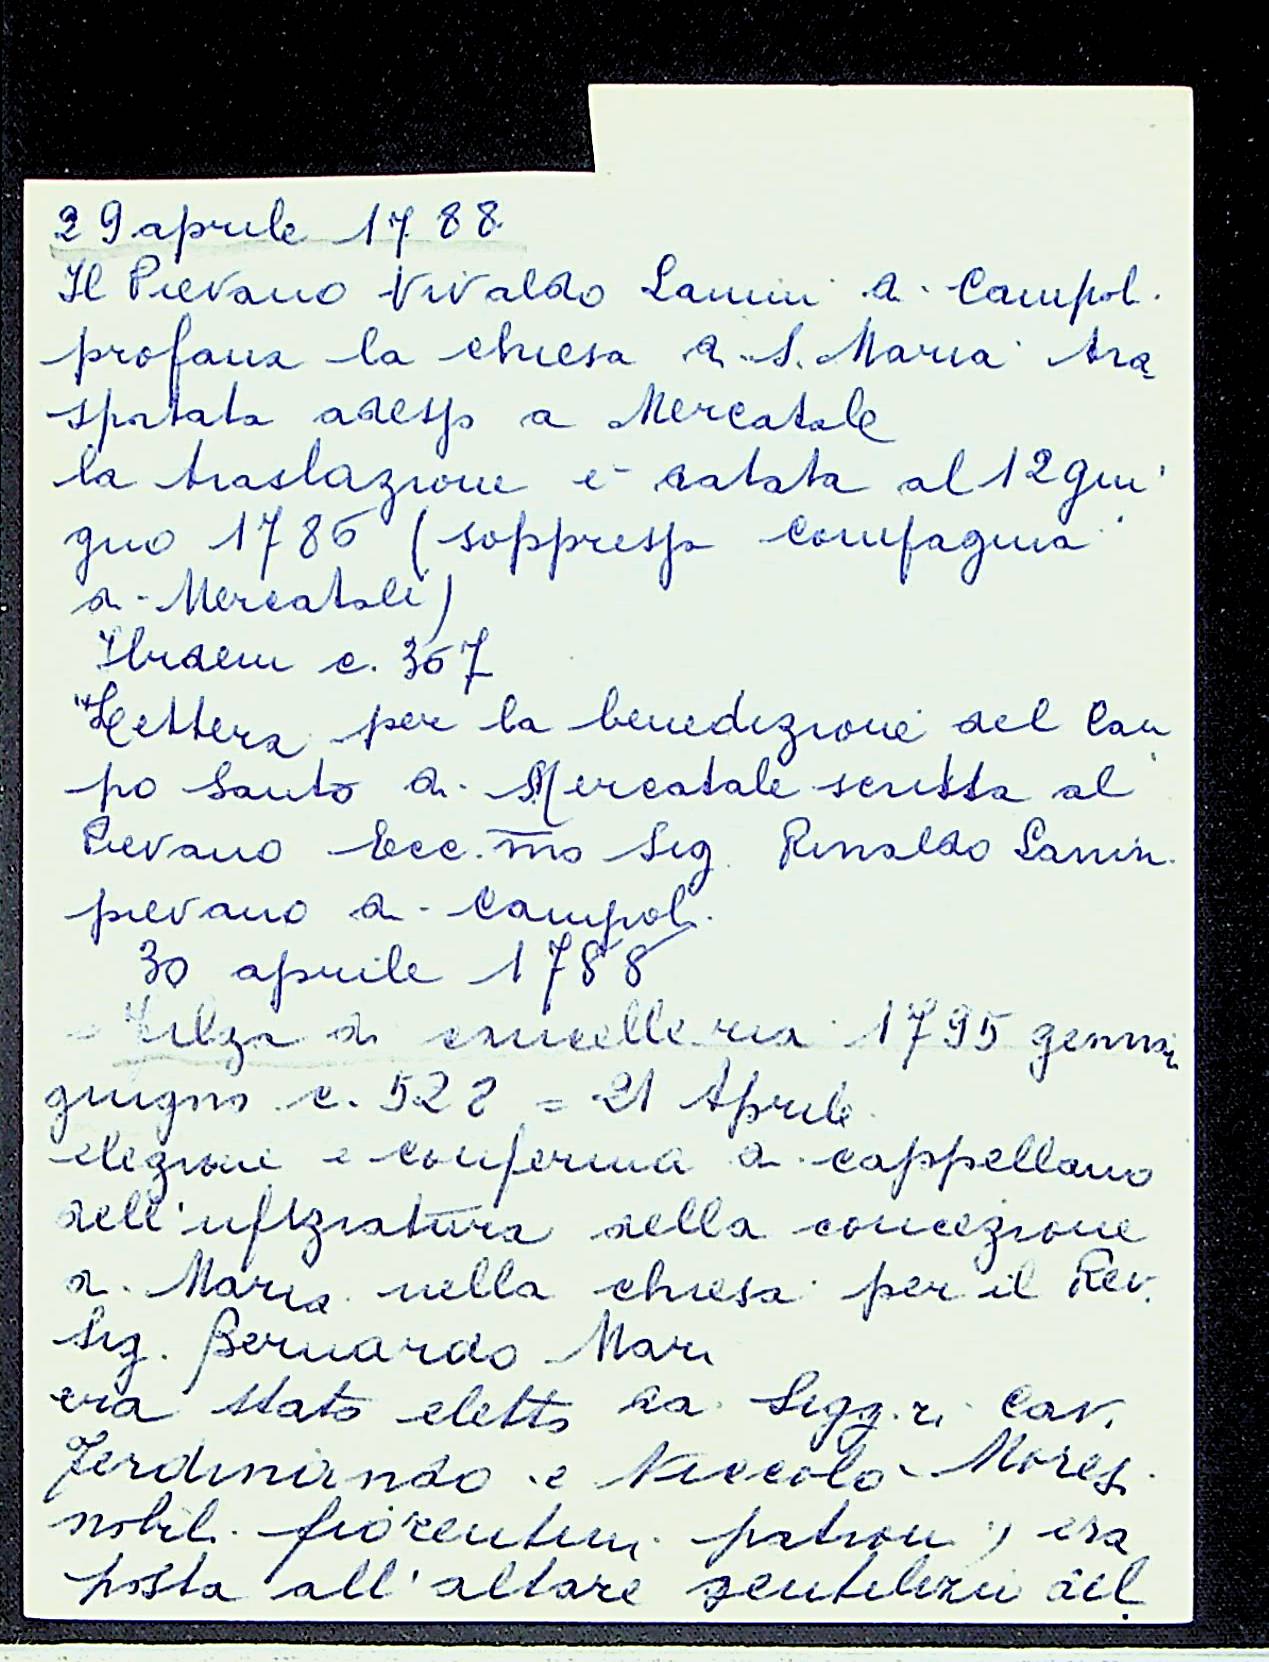 29 aprile 1788
Il Pievano Vivaldo Lanini di Campoli
profana la chiesa di S. Maria tra
sportata adesso a Mercatale
la traslazione è datata al 12 giu
gno 1786 (soppressa compagnia
di Mercatale)
Ibidem c. 367
"Lettera per la benedizione del Cam
po Santo di Mercatale scritta al
Pievano Ecc.mo Sig. Rinaldo Lanini
pievano di Campoli.
30 aprile 1788
= Filza di cancelleria 1795 gennai
giugno c. 528 = 21 Aprile
elezione e conferma di cappellano
dell'ufiziatura della concezione
di Maria nella chiesa per il Rev.
Sig. Bernardo Mari
era stato eletto da Sigg.ri Cav.
Ferdinando e Niccolò
nobili fiorentini patroni, era
posta all'altare gentilizio del